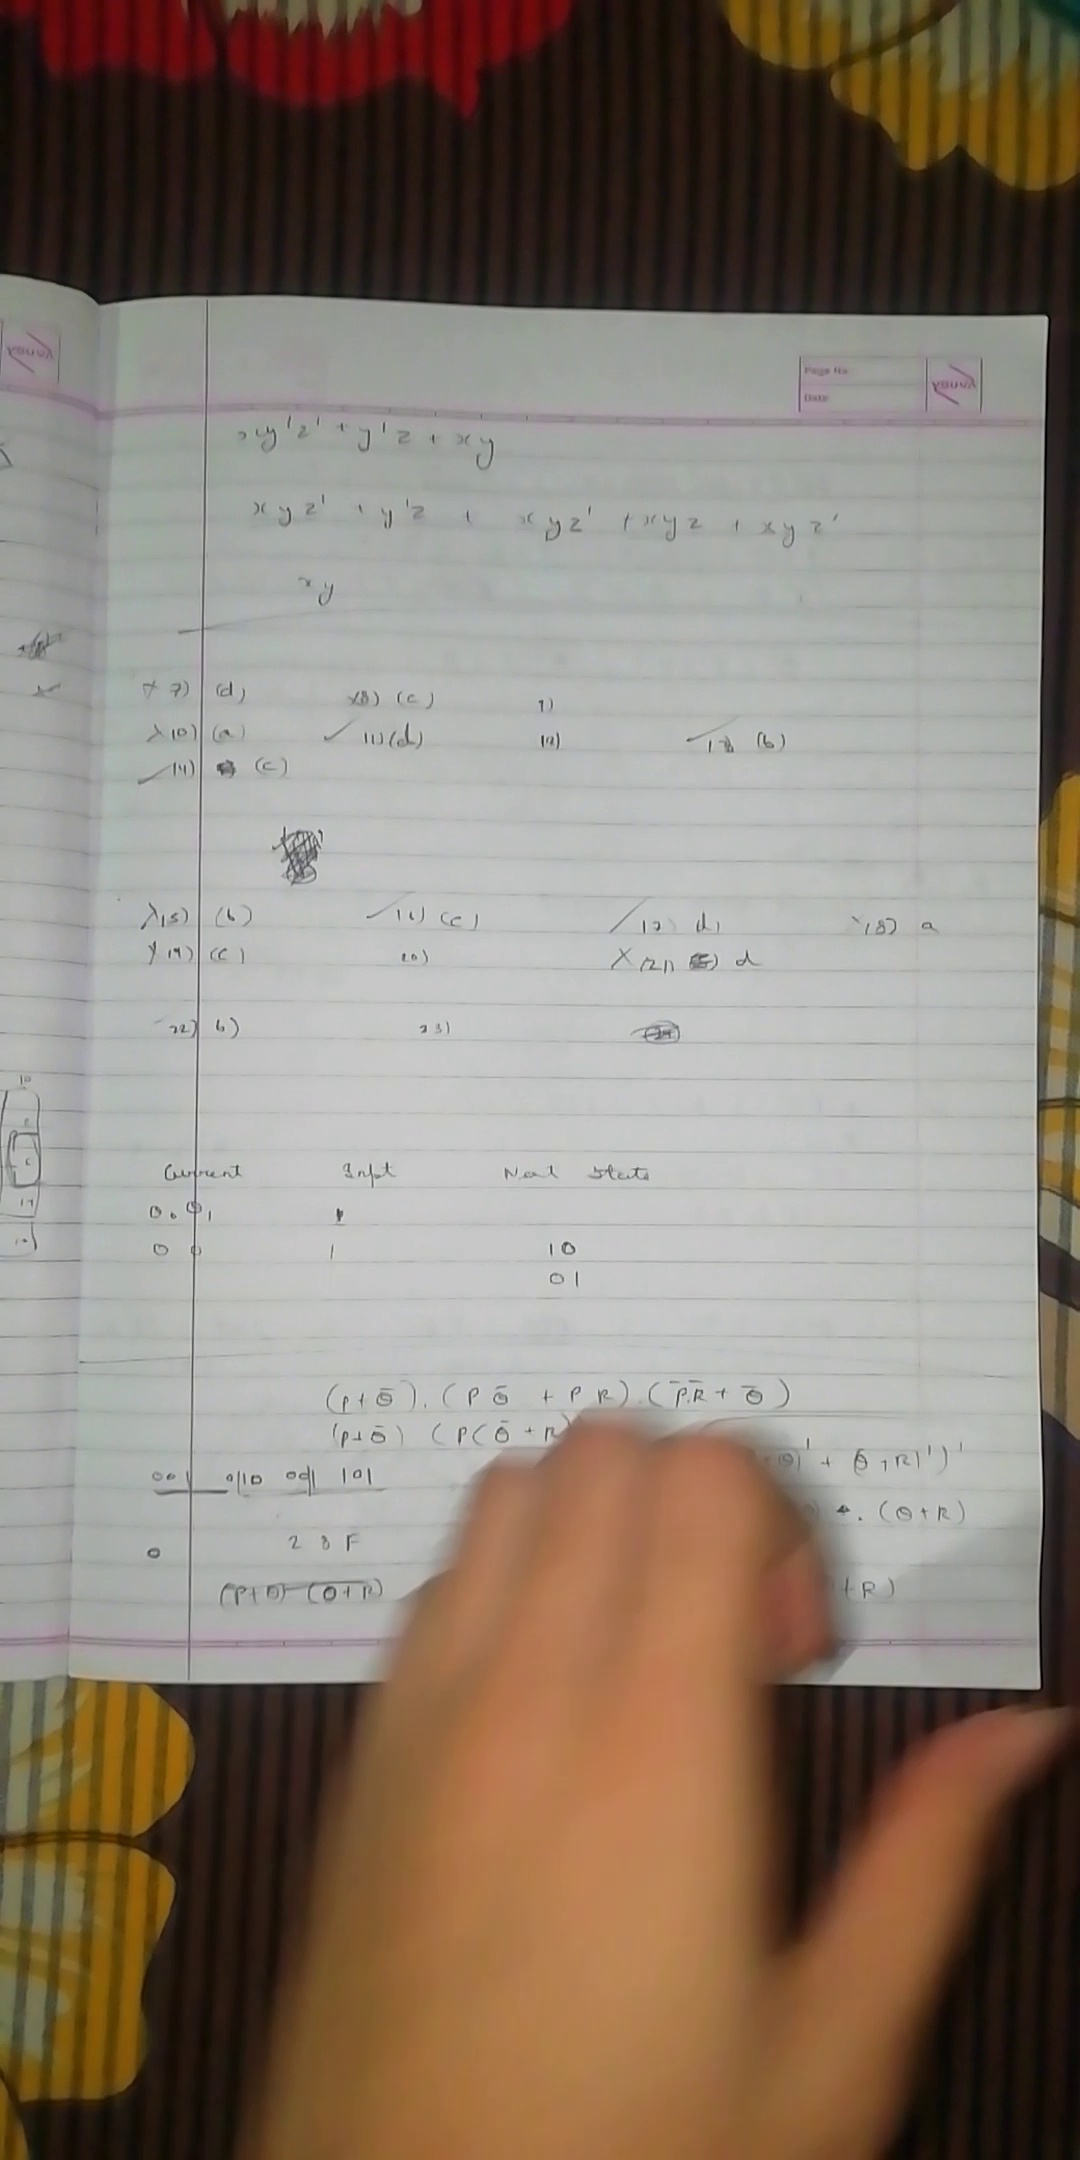 Page No.
Date
youva
xy'z' + y'z + xy
xyz' + y'z + xyz' + xyz + xyz'
xy
x 7) (d) x8) (c) 9)
x10) (a) ✓ 11) (d) 12) ✓13 (b)
✓14) (c)
x15) (b) ✓16) (c) ✓17) d) x18) a
x19) (c) 20) x 21) d
22) b) 23)
Current Input Next State
0 0 1 10
01
(P+Q̄).(PQ̄ + PR).(P̄.R̄ + Q̄)
(P+Q̄) (P(Q̄+R)
+ (Q+R)')'
001 0110 001 101
. (Q+R)
2 8 F
0
(P+Q) (Q+R)
+R)